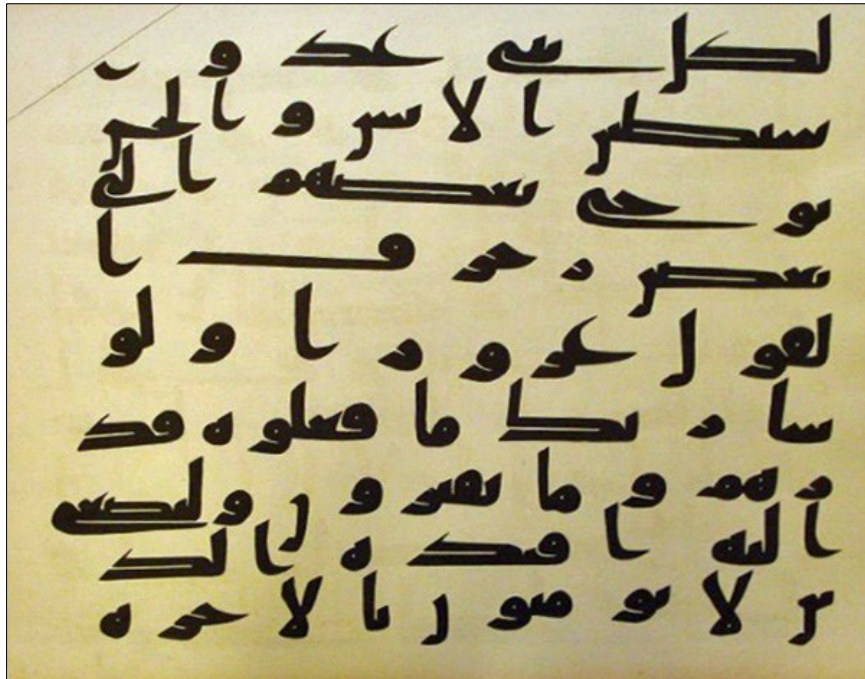 لكل نبي عدو
شيطين الانس والجن
يوحي بعضهم الى
بعض زخرف ا
لقول غرورا ولو
شا ربك ما فعلوه فذ
رهم وما يفترون ولتصغى
اليه افدة الذ
ين لا يومنون بالاخرة